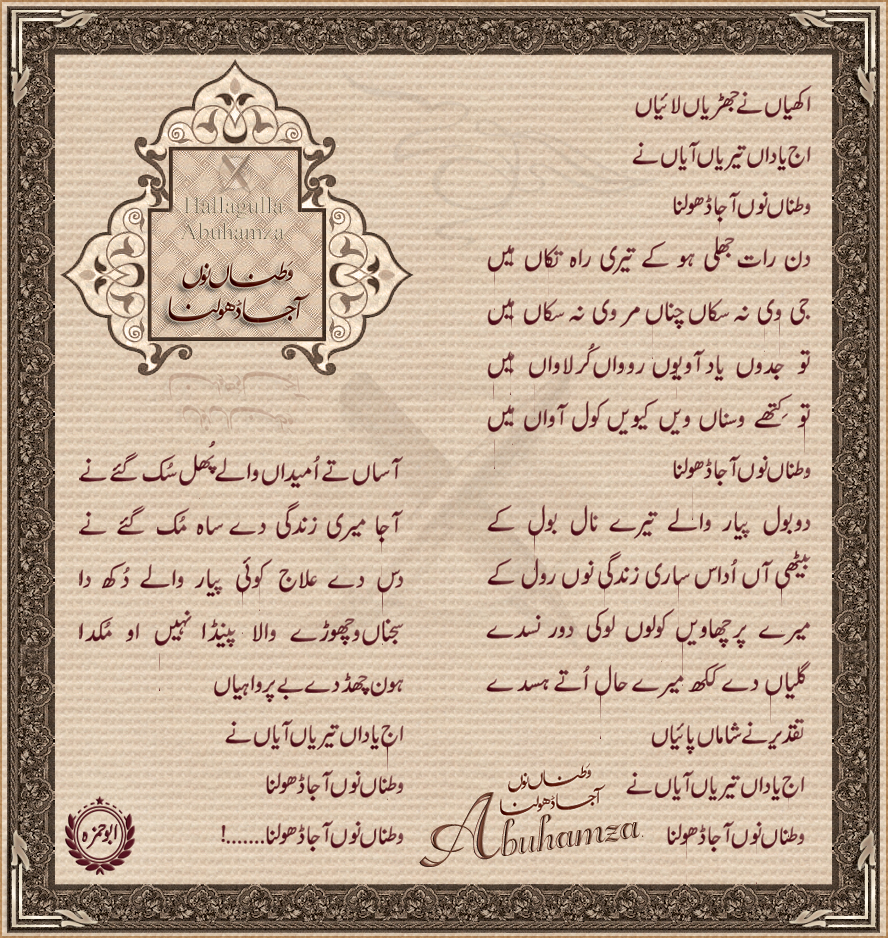 Hallagulla
Abuhamza
وطناں نوں
آجا ڈھولنا
اکھیاں نے جھڑیاں لائیاں
اج یاداں تیریاں آیاں نے
وطناں نوں آجا ڈھولنا
دن رات جھلی ہو کے تیری راہ تکاں میں
جی وی نہ سکاں چناں مر وی نہ سکاں میں
تو جدوں یاد آویوں روواں کُرلاواں میں
تو کِتھے وسناں ویں کیویں کول آواں میں
وطناں نوں آجا ڈھولنا
دو بول پیار والے تیرے نال بول کے
بیٹھی آں اُداس ساری زندگی نوں رول کے
میرے پرچھاویں کولوں لوکی دور نسدے
گلیاں دے ککھ میرے حال اُتے ہسدے
تقدیر نے شاماں پائیاں
اج یاداں تیریاں آیاں نے
وطناں نوں آجا ڈھولنا
آساں تے اُمیداں والے پُھل سُک گئے نے
آجا میری زندگی دے ساہ مُک گئے نے
دس دے علاج کوئی پیار والے دُکھ دا
سجناں وچھوڑے والا پینڈا نہیں او مُکدا
ہون چھڈ دے بے پرواہیاں
اج یاداں تیریاں آیاں نے
وطناں نوں آجا ڈھولنا
وطناں نوں آجا ڈھولنا.......!
وطناں نوں
آجا ڈھولنا
Abuhamza
ابوحمزہ